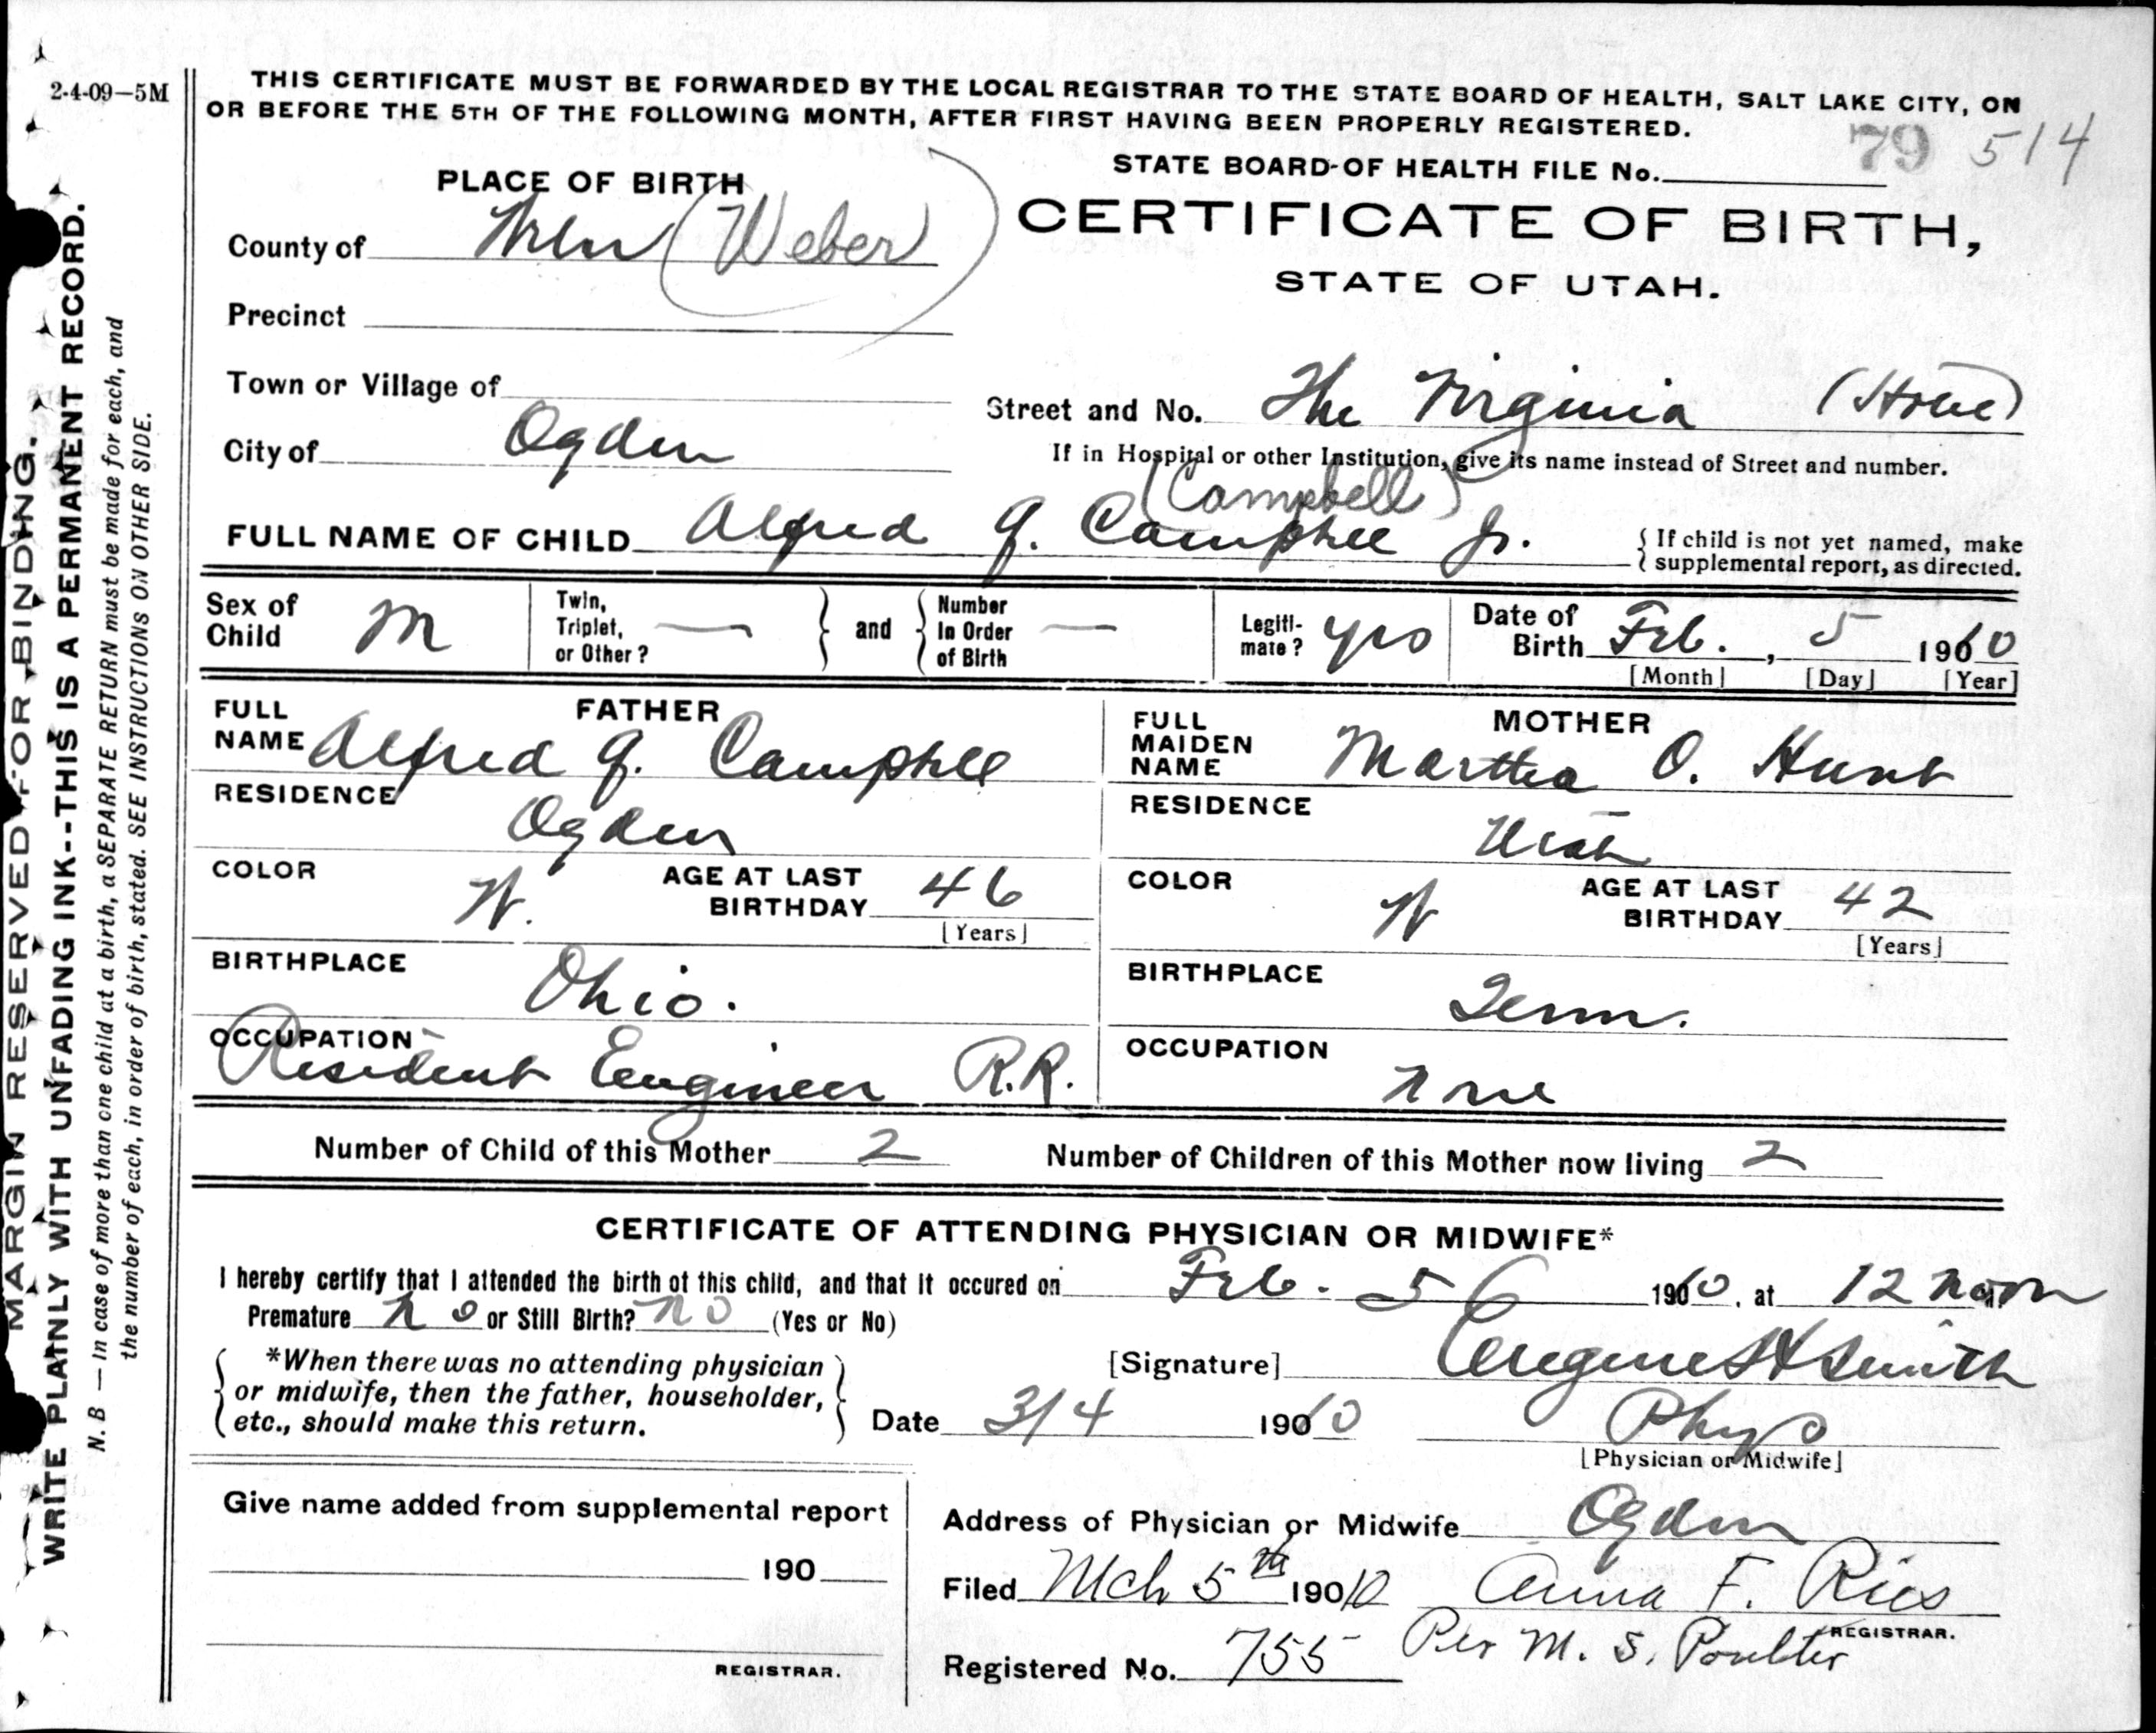 2-4-09—5M
THIS CERTIFICATE MUST BE FORWARDED BY THE LOCAL REGISTRAR TO THE STATE BOARD OF HEALTH, SALT LAKE CITY, ON
OR BEFORE THE 5TH OF THE FOLLOWING MONTH, AFTER FIRST HAVING BEEN PROPERLY REGISTERED.
79 514
STATE BOARD OF HEALTH FILE No.
PLACE OF BIRTH
CERTIFICATE OF BIRTH,
STATE OF UTAH.
County of Weber (Weber)
Precinct
Town or Village of
Street and No. The Virginia
City of Ogden
If in Hospital or other Institution, give its name instead of Street and number.
(Campbell)
FULL NAME OF CHILD Alfred G. Campbell Jr.
{ If child is not yet named, make
supplemental report, as directed.
Sex of Child M
Twin, Triplet, or Other? — } and { Number In Order of Birth —
Legitimate? yes
Date of Birth Feb. , 5 1910
[Month] [Day] [Year]
FATHER
FULL NAME Alfred G. Campbell
RESIDENCE Ogden
COLOR W. AGE AT LAST BIRTHDAY 46
[Years]
BIRTHPLACE Ohio.
OCCUPATION Resident Engineer R.R.
MOTHER
FULL MAIDEN NAME Martha O. Hunt
RESIDENCE Utah
COLOR W AGE AT LAST BIRTHDAY 42
[Years]
BIRTHPLACE Tenn.
OCCUPATION None
Number of Child of this Mother 2 Number of Children of this Mother now living 2
CERTIFICATE OF ATTENDING PHYSICIAN OR MIDWIFE*
I hereby certify that I attended the birth of this child, and that it occured on Feb. 5 1910, at 12 noon
Premature no or Still Birth? no (Yes or No)
*When there was no attending physician
or midwife, then the father, householder,
etc., should make this return.
[Signature] Eugene H Smith
Date 3/4 1910 Phys
[Physician or Midwife]
Give name added from supplemental report
190
REGISTRAR.
Address of Physician or Midwife Ogden
Filed Mch 5th 1910 Anna F. Ries
REGISTRAR.
Registered No. 755 Per M. S. Poulter
MARGIN RESERVED FOR BINDING.
WRITE PLAINLY WITH UNFADING INK--THIS IS A PERMANENT RECORD.
N. B — In case of more than one child at a birth, a SEPARATE RETURN must be made for each, and
the number of each, in order of birth, stated. SEE INSTRUCTIONS ON OTHER SIDE.